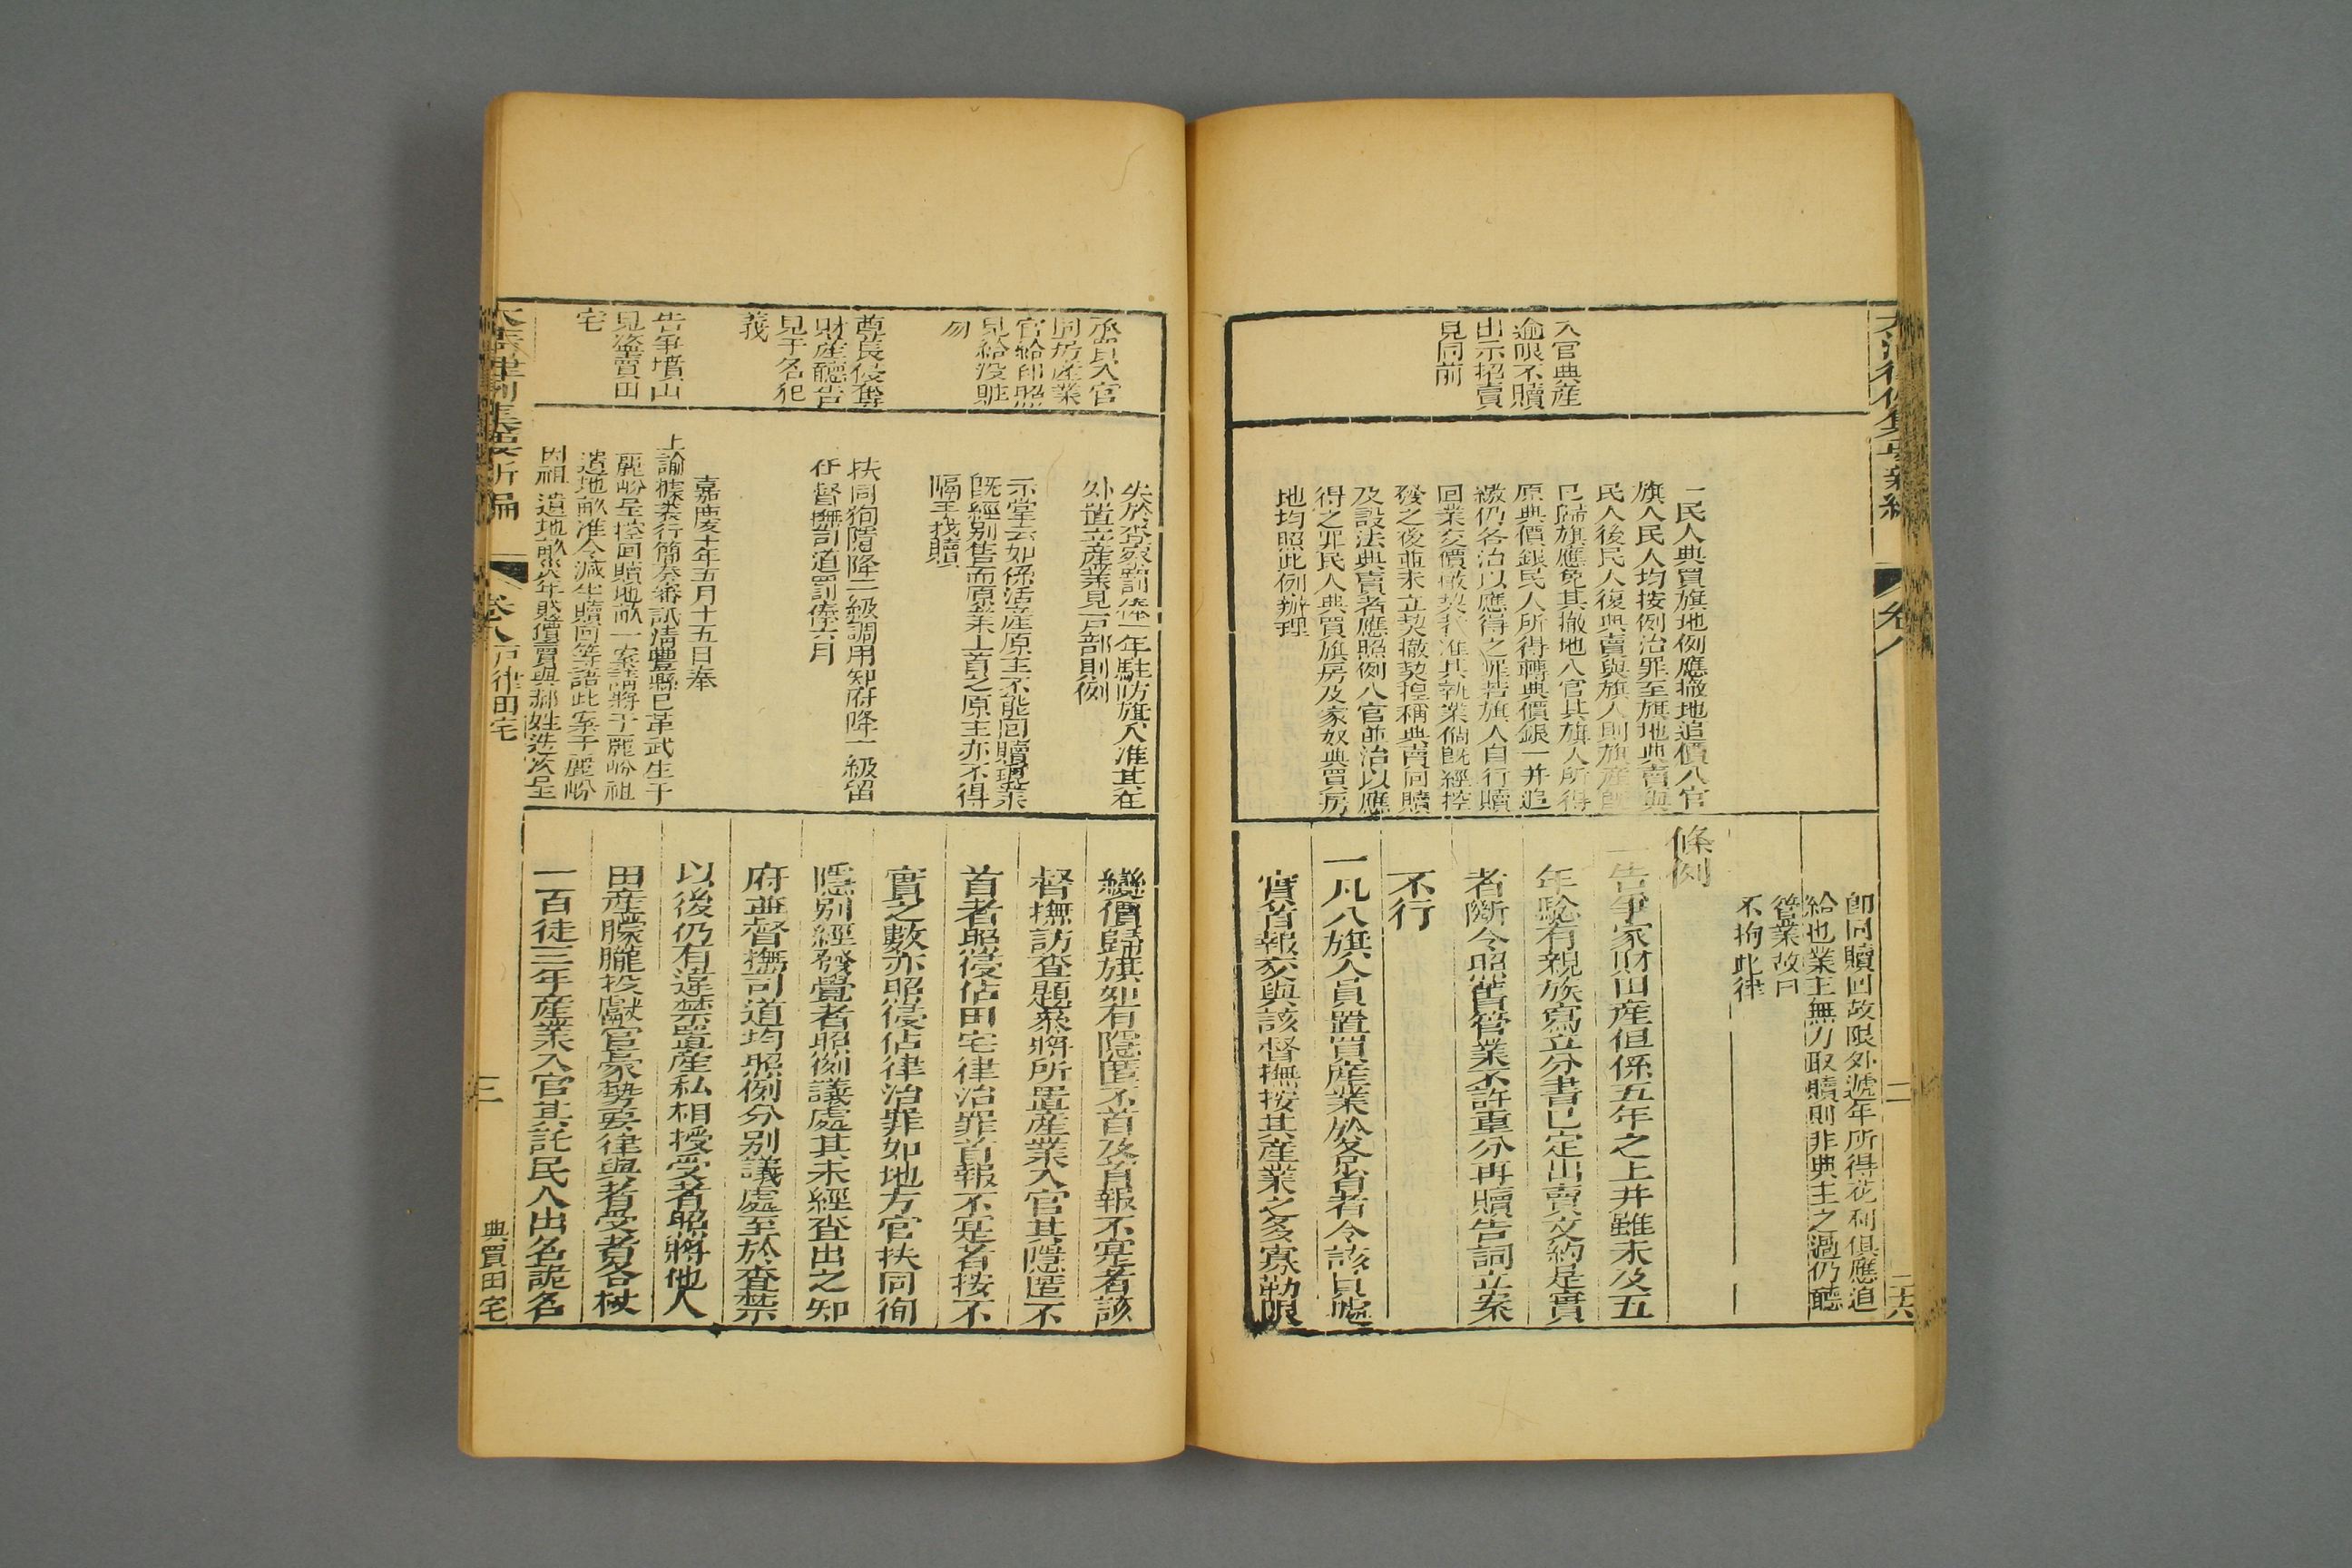 大清律例集要新編
卷八
二
二六
入官典産
逾限不贖
出示招賣
見同前
一民人典買旗地例應撤地追價入官
旗人民人均按例治罪至旗地典賣與
民人後民人復典賣與旗人則旗産既
已歸旗應免其撤地入官其旗人所得
原典價銀民人所得轉典價銀一并追
繳仍各治以應得之罪若旗人自行贖
回業交價撤契者准其執業倘既經控
發之後並未立契撤契捏稱典賣回贖
及設法典賣者應照例入官並治以應
得之罪民人典買旗房及家奴典買房
地均照此例辦理
即回贖回故限外遞年所得花利俱應追
給也業主無力取贖則非典主之過仍聽
管業故曰
不拘此律
條例
一告爭家財田産但係五年之上并雖未及五
年騐有親族寫立分書已定出賣文約是實
者斷令照舊管業不許重分再贖告詞立案
不行
一凡八旗人員置買産業於各省者令該員據
實首報交與該督撫按其産業之多寡勒限
承買入官
同房産業
官給印照
見給没贓
勿
尊長侵奪
財産聽告
見于名犯
義
告爭墳山
見盜賣田
宅
失於查察罰俸一年駐防旗人准其在
外置立産業見戸部則例
示掌云如係活産原主不能回贖現業
既經别售而原業上首之原主亦不得
隔至找贖
扶同狥隱降二級調用知府降一級留
任督撫司道罰俸六月
嘉慶十年五月十五日奉
上諭據裘行簡奏審訊清豐縣已革武生于
麗崤呈控回贖地畝一案請將于麗崤祖
遺地畝准令減半贖回等語此案于麗崤
因祖遺地畝災年賤價買與郝姓洪次呈
變價歸旗如有隱匿不首及首報不實者該
督撫訪查題叅將所置産業入官其隱匿不
首者照侵佔田宅律治罪首報不寔者按不
實之數亦照侵佔律治罪如地方官扶同徇
隱别經發覺者照例議處其未經查出之知
府並督撫司道均照例分别議處至於查禁
以後仍有違禁置産私相授受者照將他人
田産朦朧投獻官豪勢要律與者受者各杖
一百徒三年産業入官其託民人出名詭名
大清律例集要新編
卷八戸律田宅
三
典買田宅